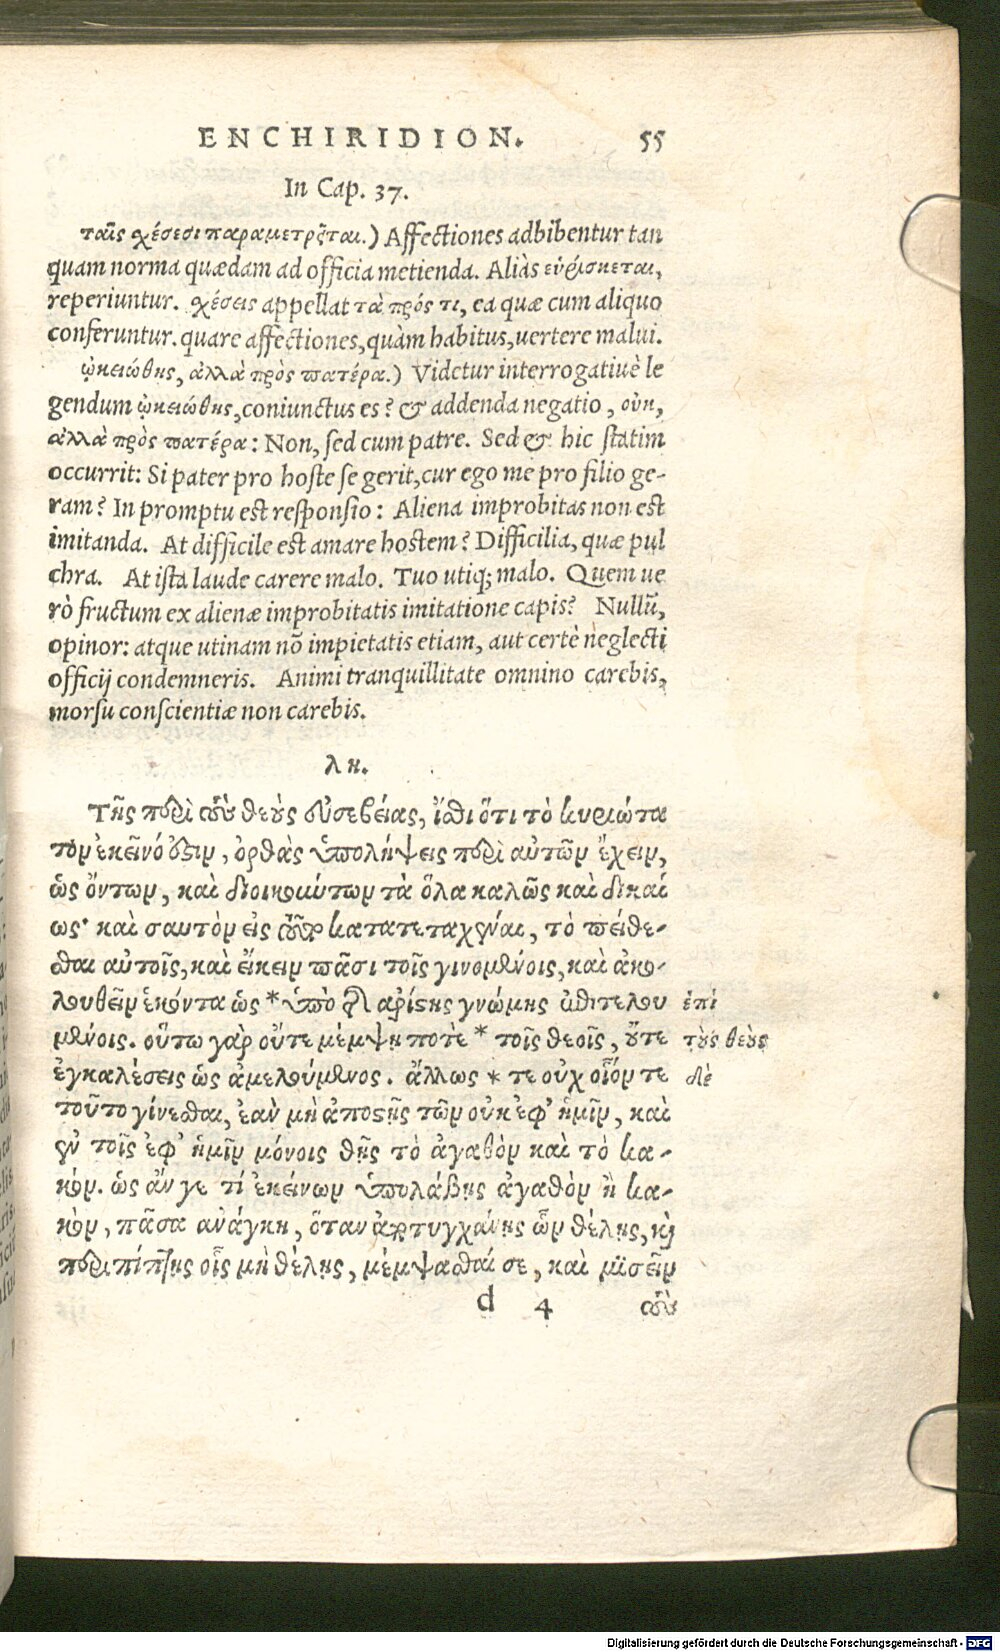 ENCHIRIDION. 55
In Cap. 37.
ταῖς σχέσεσι παραμετρεῖται.) Affectiones adhibentur tan
quam norma quædam ad officia metienda. Aliàs εὑρίσκεται,
reperiuntur. σχέσεις appellat τὰ πρός τι, ea quæ cum aliquo
conferuntur. quare affectiones, quàm habitus, uertere malui.
ᾠκειώθης, ἀλλὰ πρὸς πατέρα.) Videtur interrogatiuè le
gendum ᾠκειώθης, coniunctus es? & addenda negatio, οὐκ,
ἀλλὰ πρὸς πατέρα: Non, sed cum patre. Sed & hic statim
occurrit: Si pater pro hoste se gerit, cur ego me pro filio ge-
ram? In promptu est responsio: Aliena improbitas non est
imitanda. At difficile est amare hostem? Difficilia, quæ pul
chra. At ista laude carere malo. Tuo utiq; malo. Quem ue
rò fructum ex alienæ improbitatis imitatione capis? Nullũ,
opinor: atque utinam nõ impietatis etiam, aut certè neglecti
officij condemneris. Animi tranquillitate omnino carebis,
morsu conscientiæ non carebis.
λη.
Τῆς περὶ τοὺς θεοὺς εὐσεβείας, ἴσθι ὅτι τὸ κυριώτα
τον ἐκεῖνό ἐστιν, ὀρθὰς ὑπολήψεις περὶ αὐτῶν ἔχειν,
ὡς ὄντων, καὶ διοικούντων τὰ ὅλα καλῶς καὶ δικαί
ως· καὶ σαυτὸν εἰς τοῦτο κατατεταχέναι, τὸ πείθε-
σθαι αὐτοῖς, καὶ εἴκειν πᾶσι τοῖς γινομένοις, καὶ ἀκο-
λουθεῖν ἑκόντα ὡς * ὑπὸ τῆς ἀρίστης γνώμης ἐπιτελου ἐπὶ
μένοις. οὕτω γὰρ οὔτε μέμψη ποτὲ * τοῖς θεοῖς, οὔτε τοὺς θεοὺς
ἐγκαλέσεις ὡς ἀμελούμενος. ἄλλως * τε οὐχ οἷόν τε δὲ
τοῦτο γίνεσθαι, ἐὰν μὴ ἀποστῇς τῶν οὐκ ἐφ' ἡμῖν, καὶ
ἐν τοῖς ἐφ' ἡμῖν μόνοις θῇς τὸ ἀγαθὸν καὶ τὸ κα-
κόν. ὡς ἄν γε τί ἐκείνων ὑπολάβῃς ἀγαθὸν ἢ κα-
κὸν, πᾶσα ἀνάγκη, ὅταν ἀποτυγχάνῃς ὧν θέλῃς, καὶ
περιπίπτῃς οἷς μὴ θέλῃς, μέμψασθαί σε, καὶ μισεῖν
d 4 τοὺς
Digitalisierung gefördert durch die Deutsche Forschungsgemeinschaft - DFG